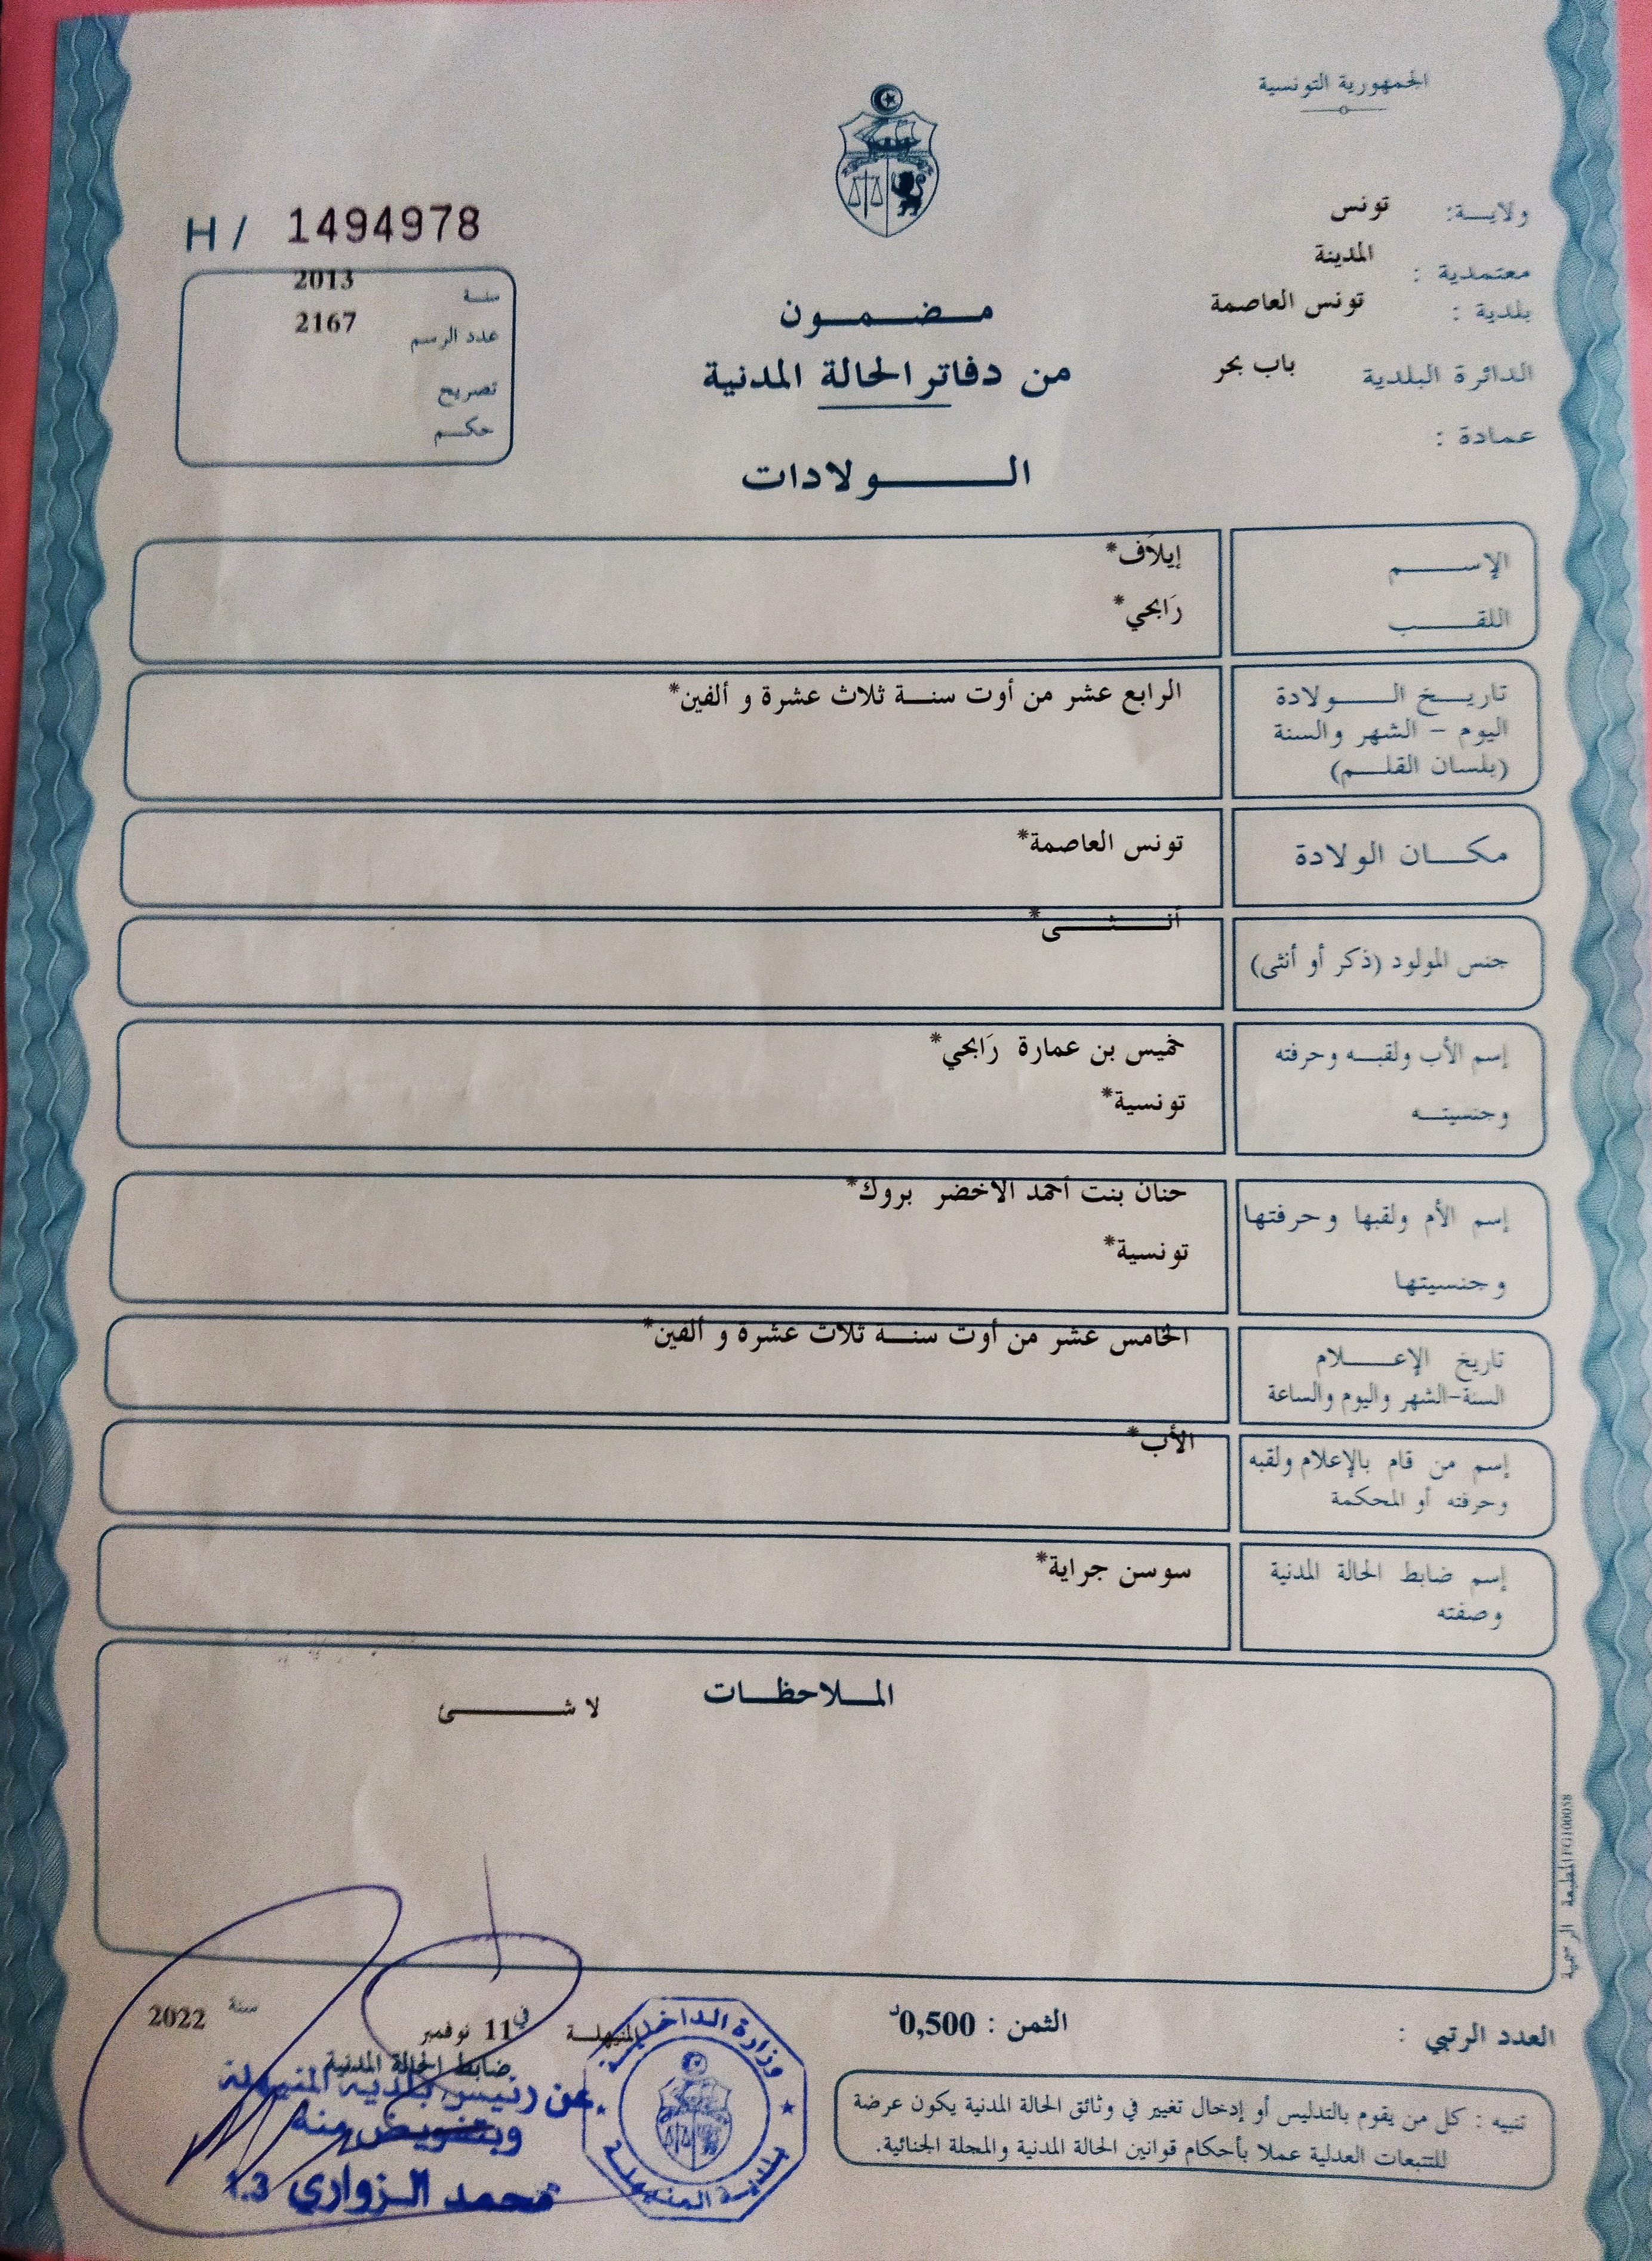 الجمهورية التونسية
ولايـــة: تونس
معتمدية : المدينة
بلدية : تونس العاصمة
الدائرة البلدية باب بحر
عمادة :
H/ 1494978
سنة 2013
عدد الرسم 2167
تصريح
حكم
مـضـمـون
من دفاتر الحالة المدنية
الـــولادات
الإســـم إيلَاف*
اللقـــب رَابحي*
تاريــخ الـــولادة الرابع عشر من أوت سنــة ثلاث عشرة و ألفين*
اليوم – الشهر والسنة
(بلسان القلــم)
مكـــان الولادة تونس العاصمة*
جنس المولود (ذكر أو أنثى) أنـــثـــى*
إسم الأب ولقبــه وحرفته خميس بن عمارة رَابحي*
وجنسيتــه تونسية*
إسم الأم ولقبها وحرفتها حنان بنت أحمد الاخضر بروك*
وجنسيتها تونسية*
تاريخ الإعـــلام الخامس عشر من أوت سنــة ثلاث عشرة و ألفين*
السنة-الشهر واليوم والساعة
إسم من قام بالإعلام ولقبه الأب*
وحرفته أو المحكمة
إسم ضابط الحالة المدنية سوسن جراية*
وصفته
المـلاحظـات
لا شـــئ
المطبعة الرسمية
العدد الرتبي :
الثمن : 0,500د
المنيهلــة في 11 نوفمبر سنة 2022
ضابط الحالة المدنية
عن رئيس بلدية المنيهلة
وبتفويض منه
محمد الزواري
وزارة الداخلية
بلدية المنيهلة
تنبيه : كل من يقوم بالتدليس أو إدخال تغيير في وثائق الحالة المدنية يكون عرضة
للتتبعات العدلية عملا بأحكام قوانين الحالة المدنية والمجلة الجنائية.